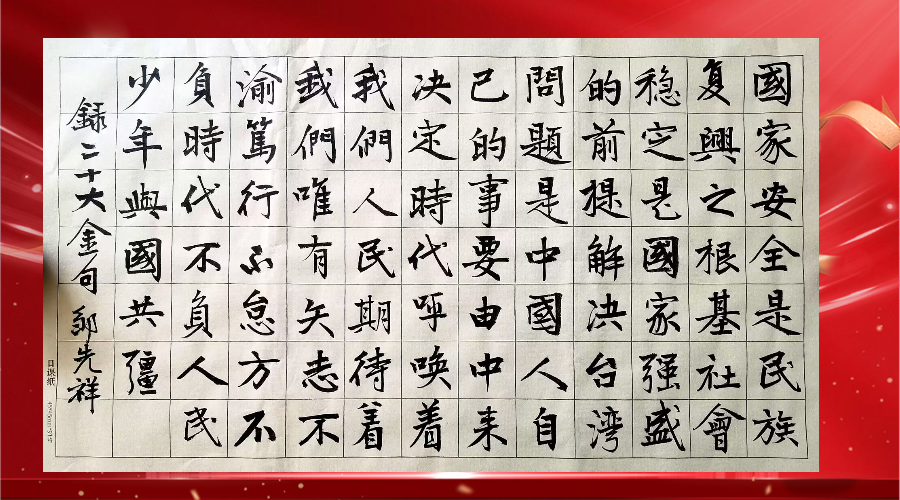 國家安全是民族
复興之根基社會
稳定是國家强盛
的前提解决台湾
問題是中國人自
己的事要由中来
决定時代呼唤着
我們人民期待着
我們唯有矢志不
渝篤行不怠方不
負時代不負人民
少年與國共彊
録二十大金句 邹先祥
日课纸